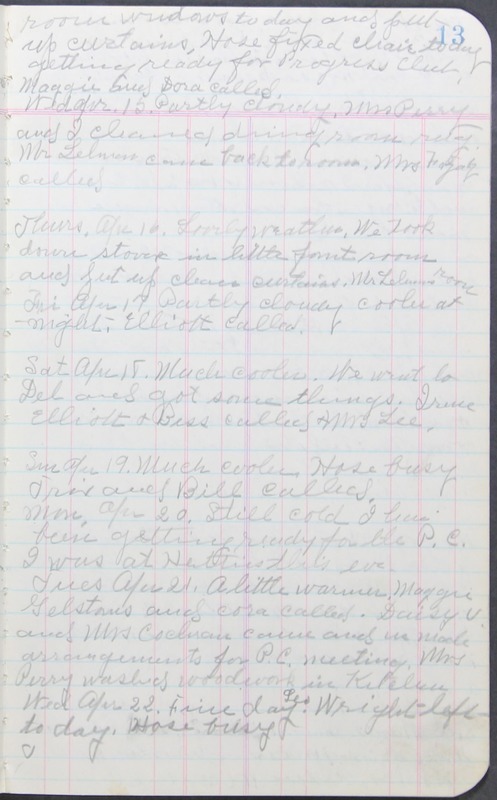 13
room windows to day and put
up curtains, Hose fixed chair to day
getting ready for Progress Club,
Maggie and Dora called.
Wed Apr. 15. Partly cloudy. Mrs Perry
and I cleaned dining room rug.
Mr Lelmon came back to room. Mrs
called
Thurs. Apr 16. Lovely weather. We took
down stove in little front room
and put up clean curtains. Mr room
Fri Apr 17 Partly cloudy cooler at
night. Elliott called.
Sat Apr 18. Much cooler. We went to
Del and got some things. Irene
Elliott & Bess called & Mrs Lee.
Sun Apr 19. Much cooler Hose busy
Trix and Bill called,
Mon. Apr 20. Still cold I have
been getting ready for the P. C.
I was at this eve.
Tues Apr 21. A little warmer. Maggie
Gelstons and Cora called. Daisy V.
and Mrs Cochran came and we made
arrangements for P. C. meeting. Mrs.
Perry washed woodwork in Kitchen
Wed Apr 22. Fine day. Geo. Wright left
to day. Hose busy